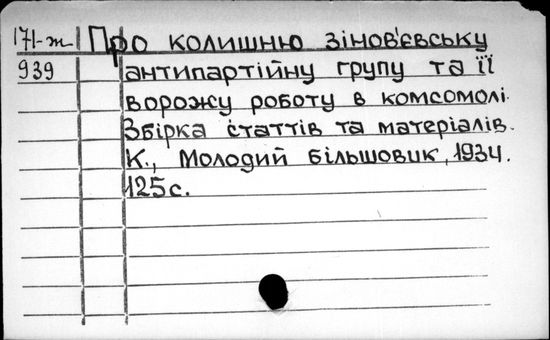 171-ж Про колишню зінов'євську
939 антипартійну групу та її
ворожу роботу в комсомолі.
Збірка статтів та матеріалів.
К., Молодий більшовик, 1934.
125с.